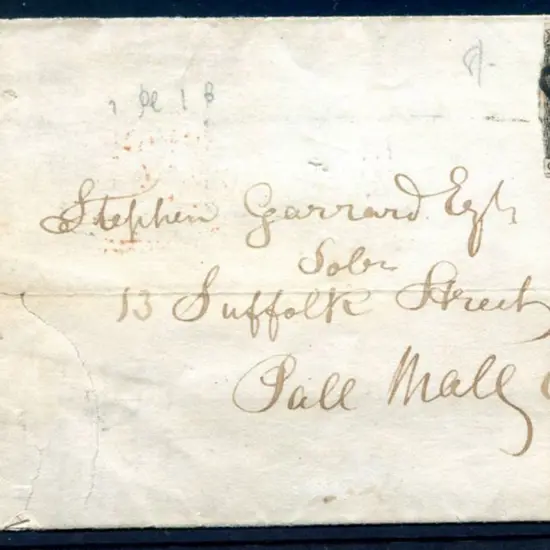 1 Pl 1 B
Stephen Garrard Esqr
Solr
13 Suffolk Street
Pall Mall